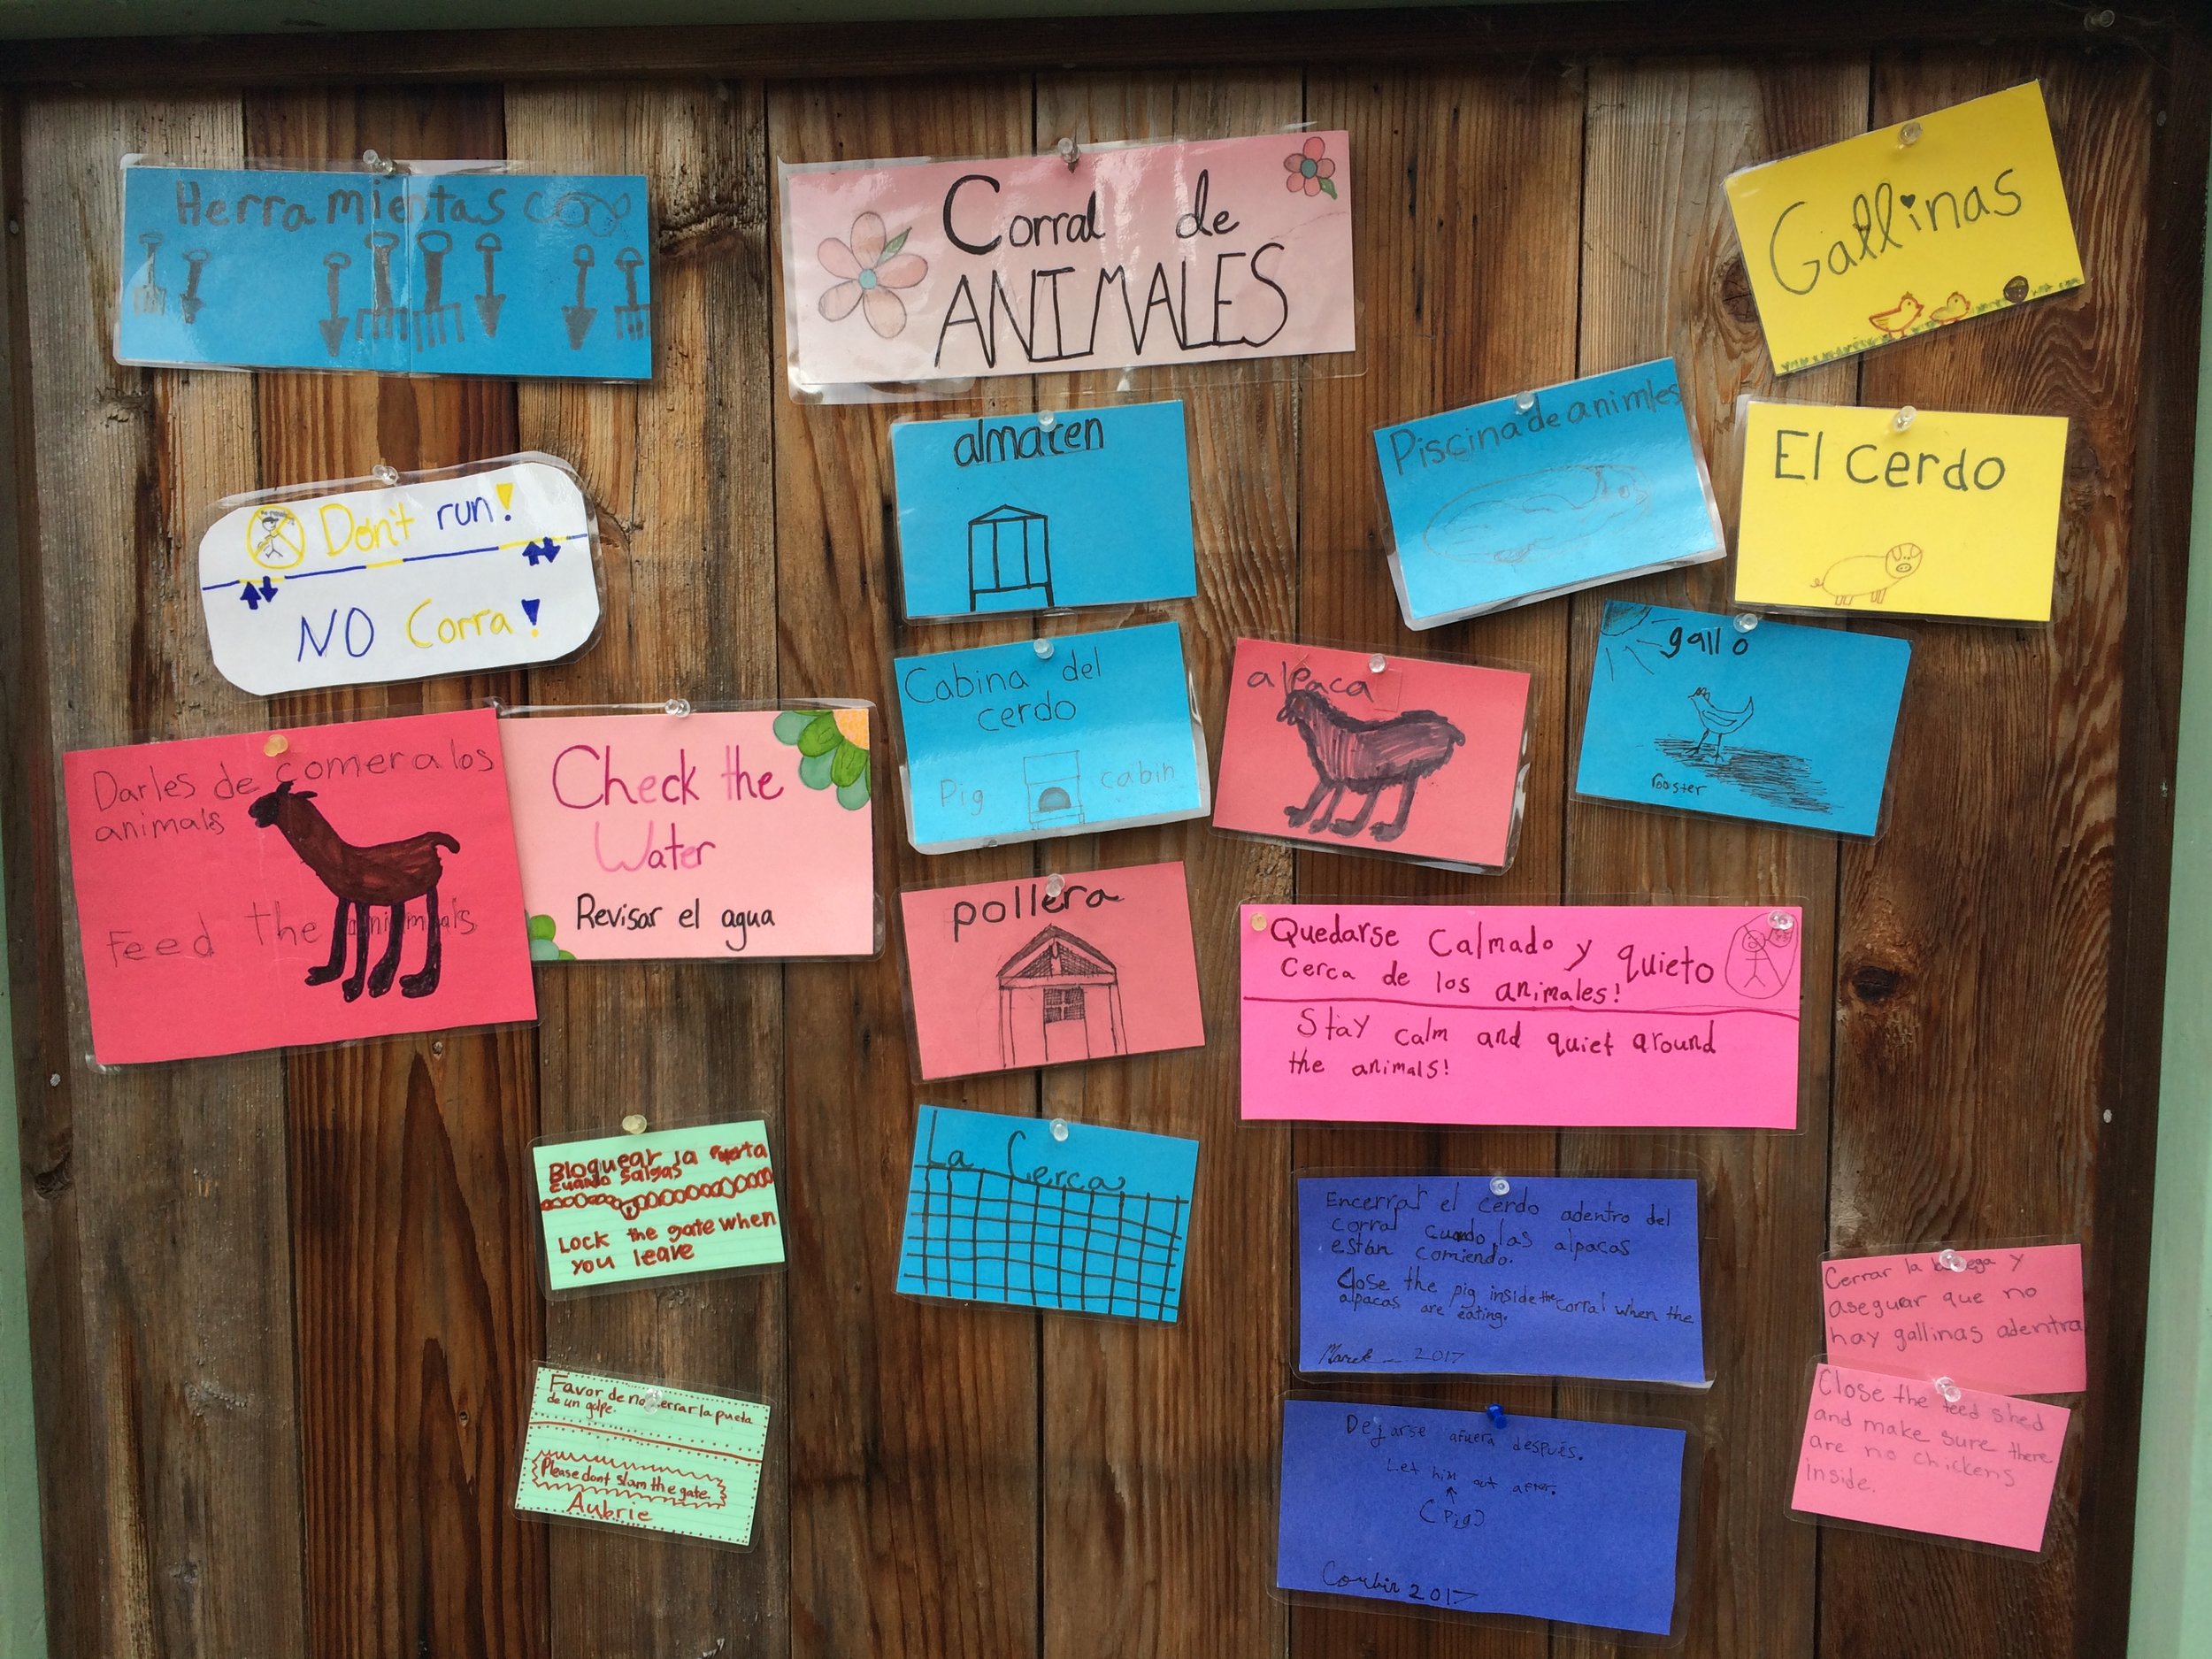 Herramientas
Corral de
ANIMALES
Gallinas
Don't run!
NO Corra!
almacen
Piscina de animles
El cerdo
Cabina del
cerdo
Pig cabin
alpaca
gallo
rooster
Darles de comer a los
animals
Feed the animals
Check the
Water
Revisar el agua
pollera
Quedarse Calmado y quieto
Cerca de los animales!
Stay calm and quiet around
the animals!
Bloquear la Puerta
cuando salgas
Lock the gate when
you leave
La Cerca
Encerrar el cerdo adentro del
corral cuando las alpacas
están comiendo.
Close the pig inside the corral when the
alpacas are eating.
2017
Cerrar la y
asegurar que no
hay gallinas adentra
Close the feed shed
and make sure there
are no chickens
inside.
Favor de no errar la pueta
de un golpe.
Please dont slam the gate.
Aubrie
Dejarse afuera después.
Let him out after.
(Pig)
Corbin 2017